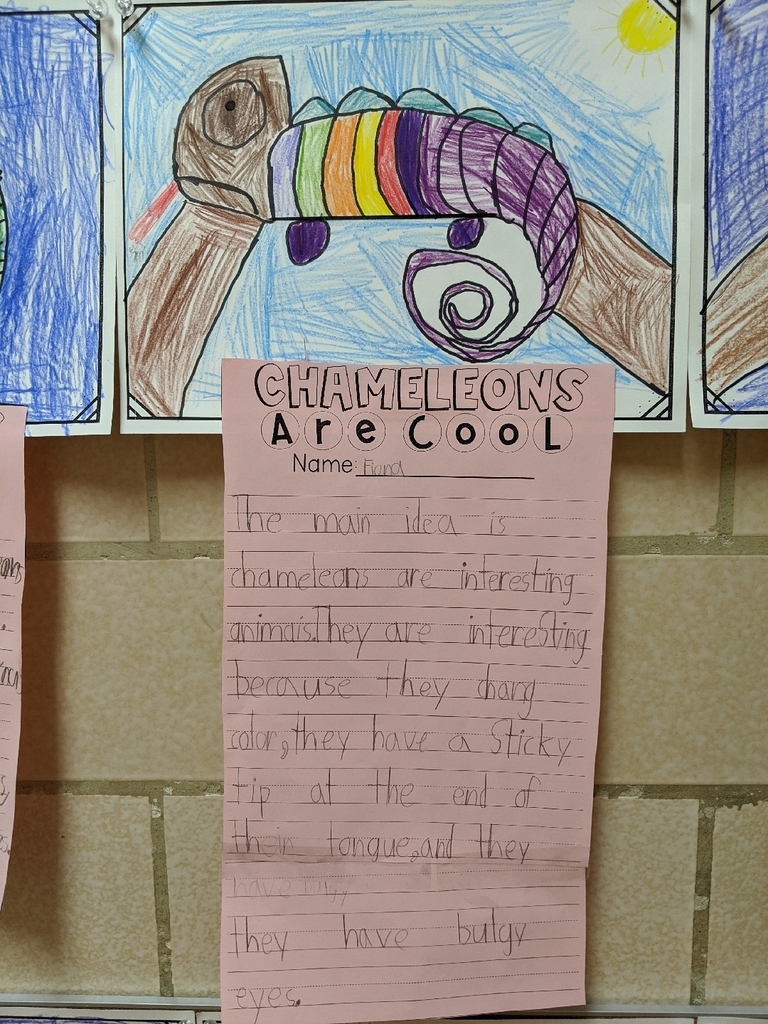 CHAMELEONS
Are Cool
Name:
The main idea is
chameleons are interesting
animals.They are interesting
because they chang
color, they have a Sticky
tip at the end of
their tongue, and they
have bulgy
they have bulgy
eyes.